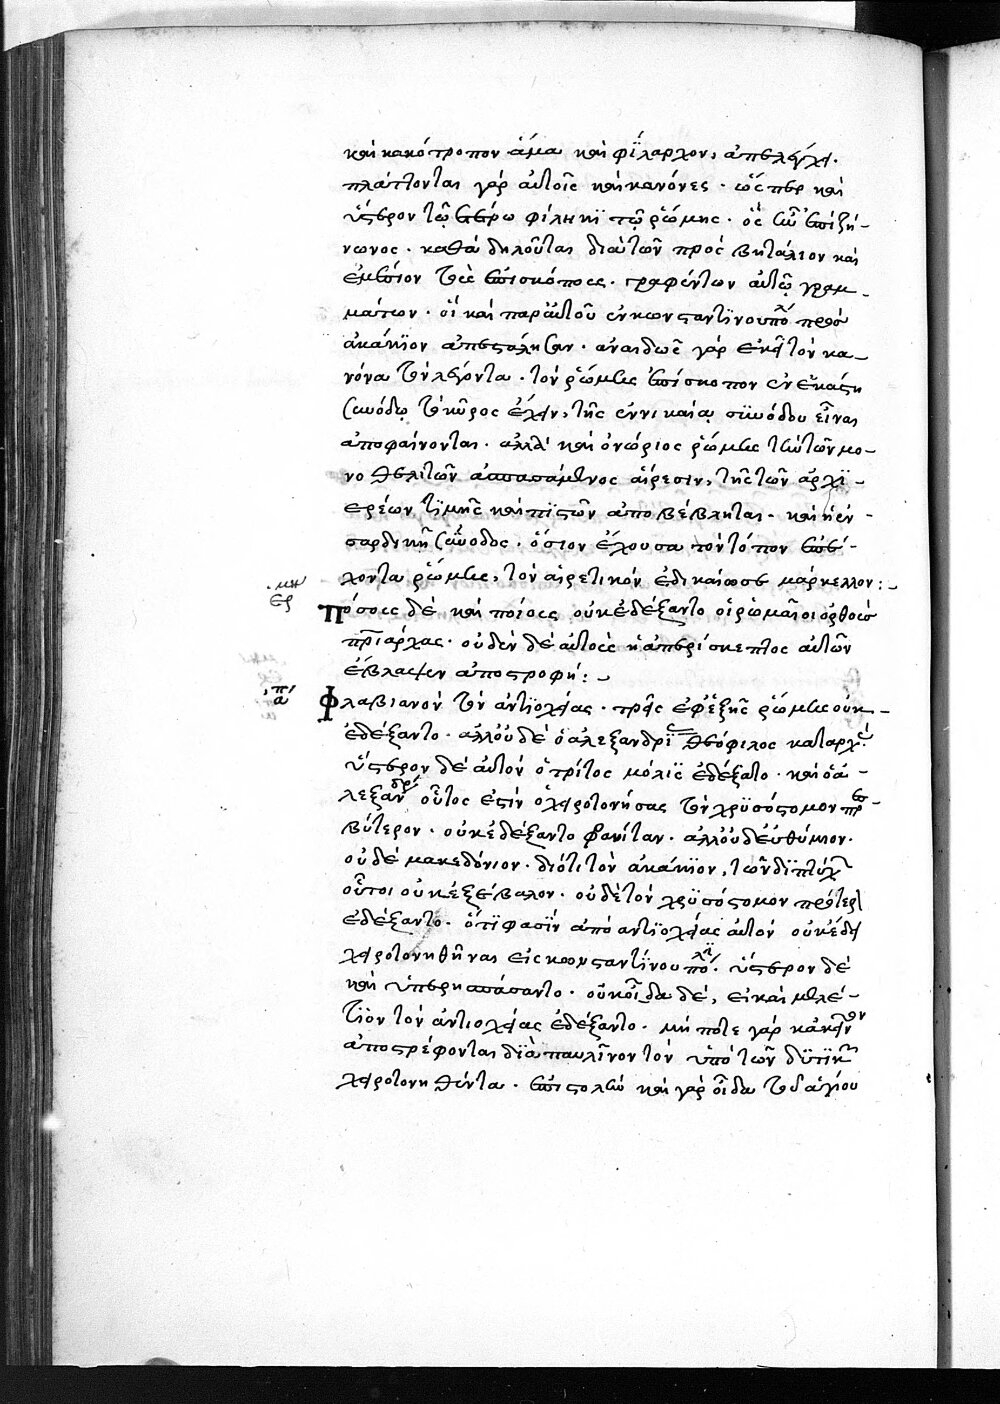 καὶ κακότροπον ἅμα καὶ φίλαρχον, ἀπελέγχει.
πλάττονται γὰρ αὐτοῖς καὶ κανόνες · ὥσπερ καὶ
ὕστερον τῶ ἑτέρω φίληκϊ τῶ ῥώμης · ὃς ἦν ἐπὶ ζή-
νωνος · καθὰ δηλοῦται διὰ τῶν πρὸς βητάλιον καὶ
τοὺς ἐπισκόπους · γραφέντων αὐτῶ γραμ-
μάτων · οἳ καὶ παρ' αὐτοῦ ἐν κωνσταντϊνουπόλει πρὸς
ἀκάκϊον ἀπεστάλησαν · ἀναιδῶς γὰρ ἐκεῖ τὸν κα-
νόνα τὸν λέγοντα · τὸν ῥώμης ἐπίσκοπον ἐν ἑκάστη
συνόδω τὸ κῦρος ἔχειν, τῆς ἐν νικαία συνόδου εἶναι
ἀποφαίνονται · ἀλλὰ καὶ ὀνώριος ῥώμης τὴν τῶν μο-
νοθελητῶν ἀσπασάμενος αἵρεσιν, τῆς τῶν ἀρχϊ-
ερέων τϊμῆς καὶ πϊστῶν ἀποβέβληται · καὶ ἡ ἐν
σαρδικῆ σύνοδος · ὅσιον ἔχουσα τὸν τόπον ἐπέ-
χοντα ῥώμης, τὸν αἱρετικὸν ἐδικαίωσε μάρκελλον :
Πόσους δὲ καὶ ποίους οὐκ ἐδέξαντο οἱ ῥωμαῖοι ὀρθοὺς
πατριάρχας · οὐδὲν δὲ αὐτοὺς ἡ ἀπερίσκεπτος αὐτῶν
ἔβλαψεν ἀποστροφή :
Φλαβιανὸν τὸν ἀντϊοχείας · τρεῖς ἐφεξῆς ῥώμης οὐκ
ἐδέξαντο · ἀλλ' οὐδὲ ὁ ἀλεξανδρείας θεόφιλος καταρχὰς
ὕστερον δὲ αὐτὸν ὁ τρίτος μόλϊς ἐδέξατο · καὶ ὁ ἀ-
λεξανδρείας οὗτος ἐστὶν ὁ χειροτονήσας τὸν χρϋσόστομον πρεσ-
βύτερον · οὐκ ἐδέξαντο φραυίταν · ἀλλ' οὐδὲ εὐθύμιον ·
οὐδὲ μακεδόνιον · διότι τὸν ἀκάκϊον, τῶν δϊπτύχων
οὗτοι οὐκ ἐξέβαλον · οὐδὲ τὸν χρϋσόστομον πρότερον
ἐδέξαντο · ὅτϊ φασὶν ἀπὸ ἀντϊοχείας αὐτὸν οὐκ ἔδει
χειροτονηθῆναι εἰς κωνσταντϊνουπόλιν · ὕστερον δὲ
καὶ ὑπερησπάσαντο · οὐκ οἶδα δὲ, εἰ καὶ μελέ-
τϊον τὸν ἀντιοχείας ἐδέξαντο · μή ποτε γὰρ κἀκεῖνον
ἀποστρέφονται δϊὰ παυλῖνον τὸν ὑπὸ τῶν δϋτϊκῶν
χειροτονηθέντα · ἐπιστολὴν καὶ γὰρ οἶδα τοῦ ἁγίου